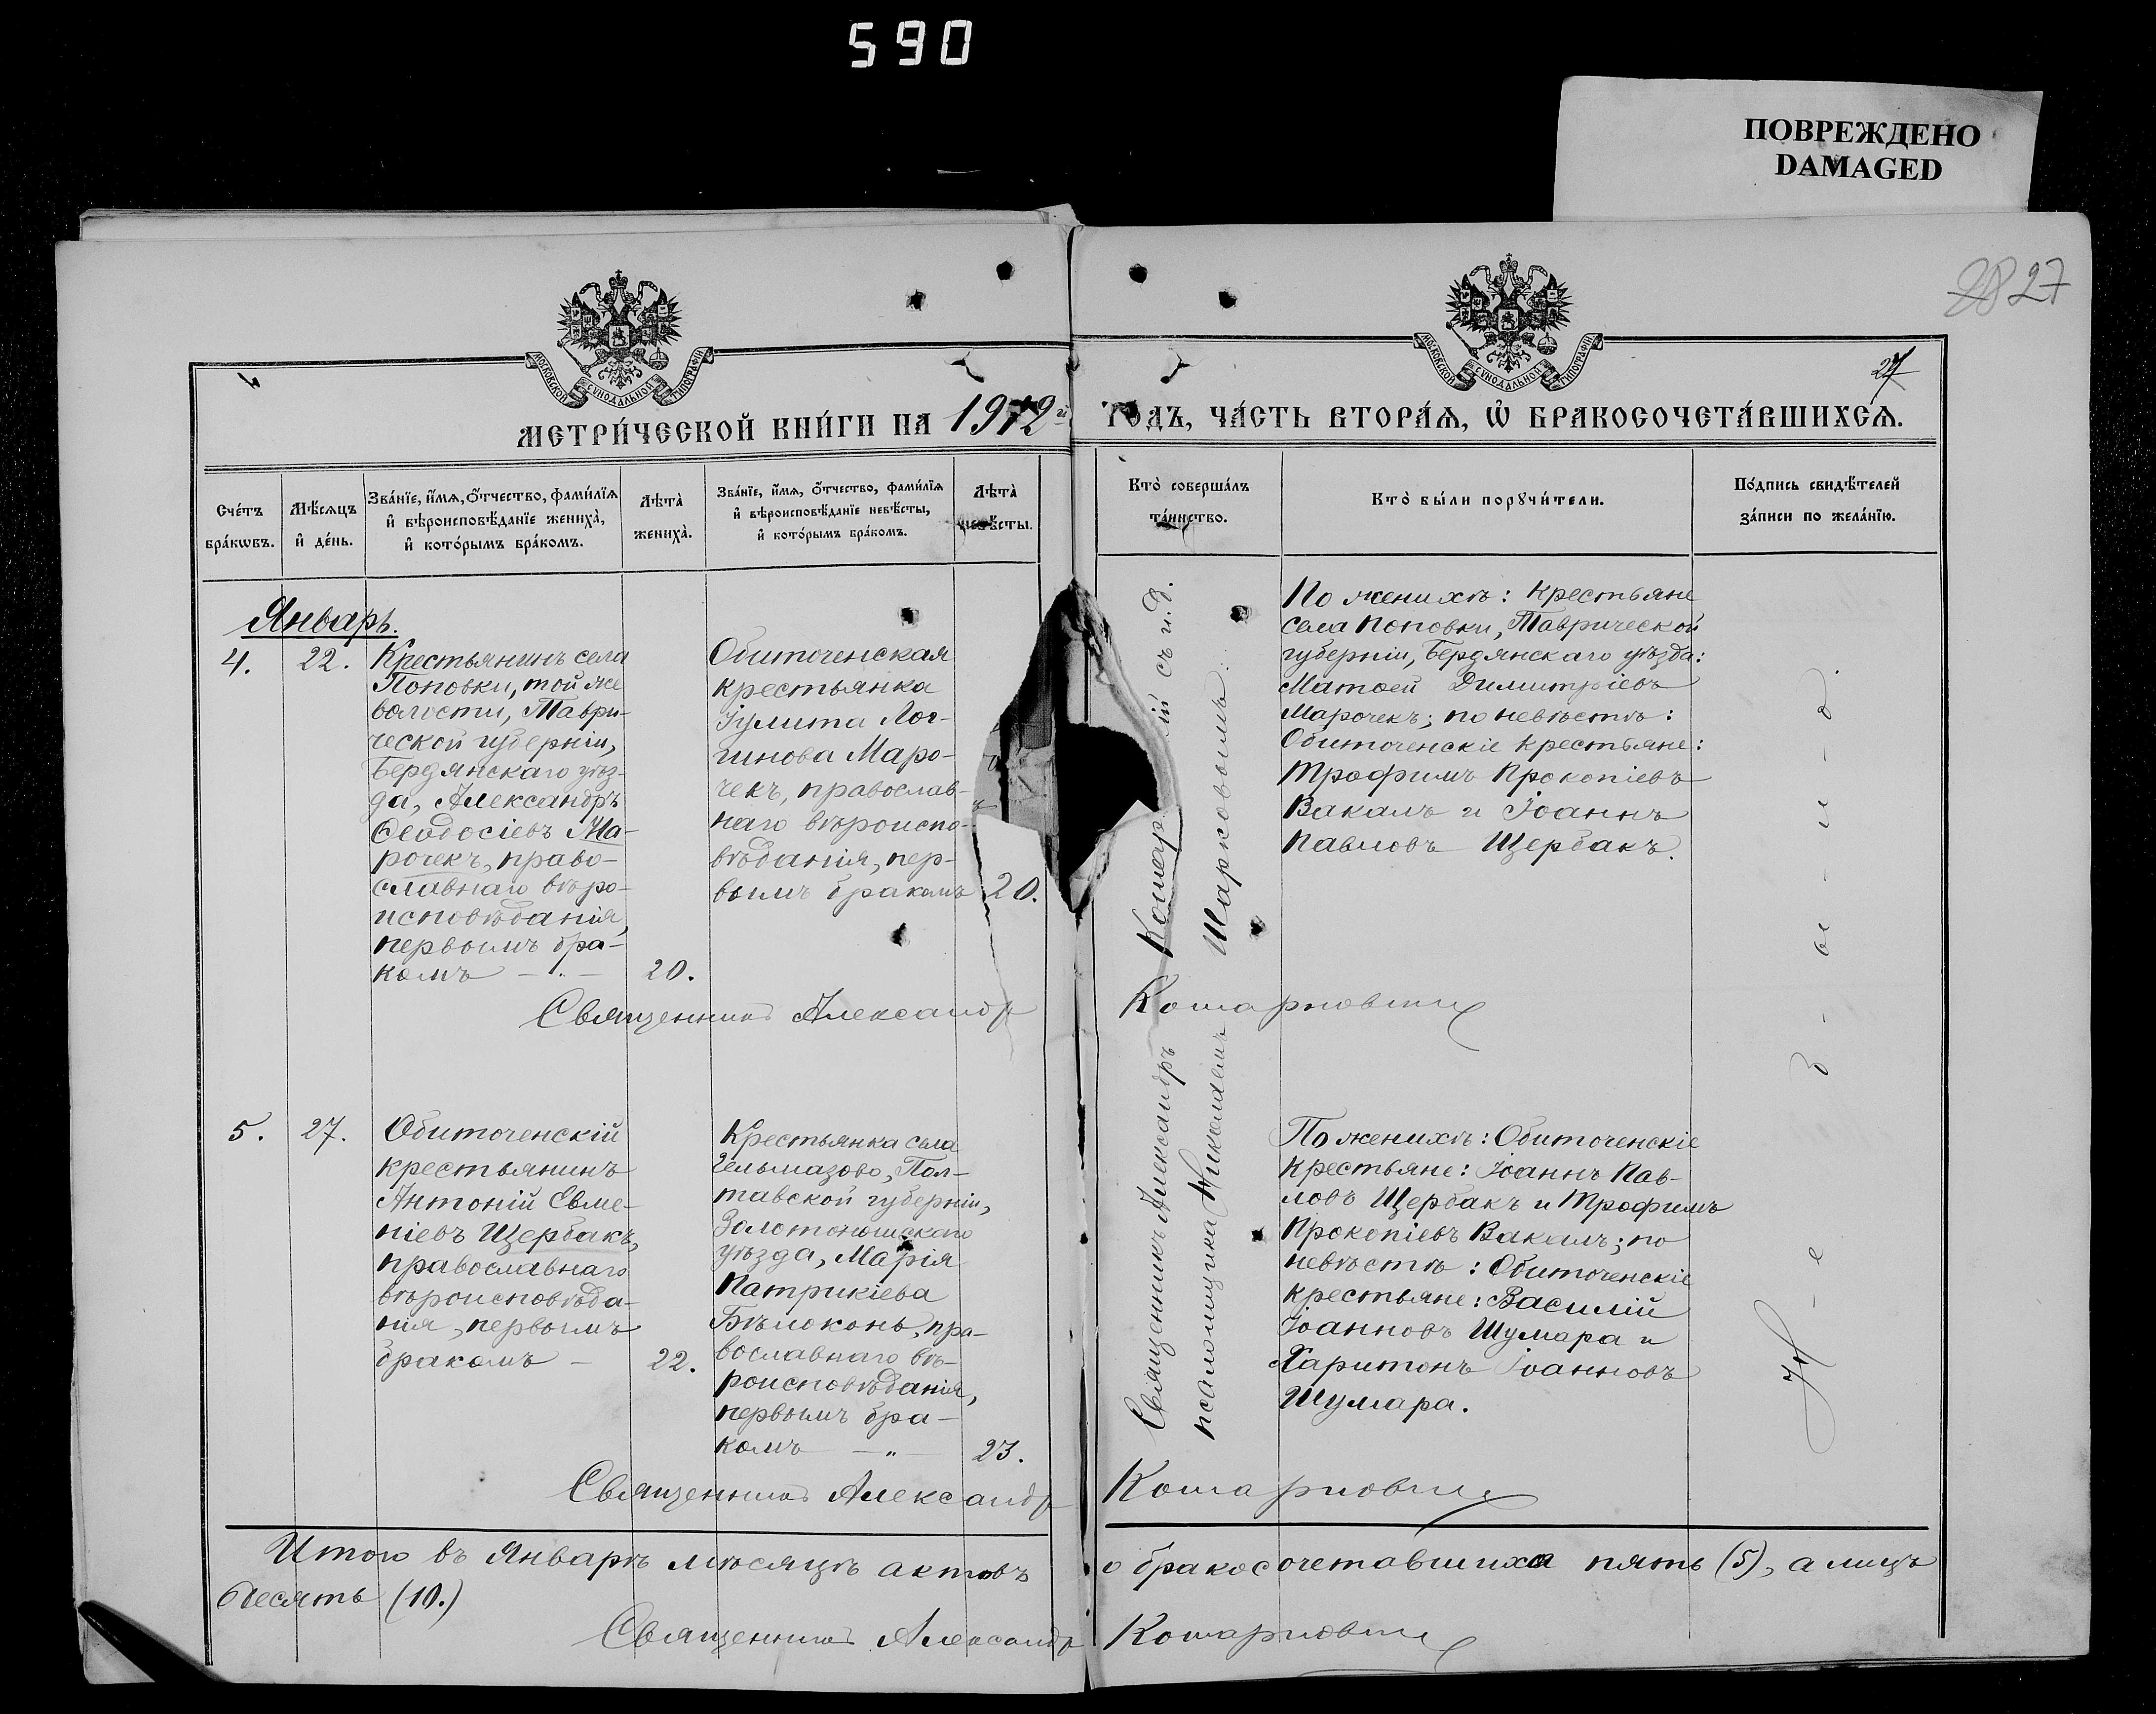 590
ПОВРЕЖДЕНО
DAMAGED
2827
27
МОСКОВСКОЙ СѴНОДАЛЬНОЙ ТИПОГРАФІИ
МОСКОВСКОЙ СѴНОДАЛЬНОЙ ТИПОГРАФІИ
МЕТРИ́ЧЕСКОЙ КНИ́ГИ НА 1912й ГОДЪ, ЧА́СТЬ ВТОРА́Ѧ, Ѡ БРАКОСОЧЕТА́ВШИХСѦ.
Сче́тъ
бра́кѡвъ.
Мѣ́сѧцъ
и де́нь.
Зва́нїе, и́мѧ, о́тчество, фами́лїѧ
и вѣроисповѣ́данїе жениха̀,
и кото́рымъ бра́комъ.
Лѣ́та
жениха̀.
Зва́нїе, и́мѧ, о́тчество, фами́лїѧ
и вѣроисповѣ́данїе невѣ́сты,
и кото́рымъ бра́комъ.
Лѣ́та
невѣ́сты.
Кто̀ соверша́лъ
та́инство.
Кто̀ бы́ли порꙋчи́тели.
По́дпись свидѣ́телей
за́писи по жела́нїю.
Январь.
4.
22.
Крестьянинъ села
Поповки, той же
волости, Таври-
ческой губерніи,
Бердянскаго уѣз-
да, Александръ
Ѳеодосіевъ Ма-
рочекъ, право-
славнаго вѣро-
исповѣданія,
первымъ бра-
комъ — „ —
20.
Обиточенская
крестьянка
Іулита Лог-
гинова Маро-
чекъ, православ-
наго вѣроиспо-
вѣданія, пер-
вымъ бракомъ
20.
Священникъ Александръ Кошар ій съ и. д.
псаломщика Николаемъ Шарковымъ.
По женихѣ: крестьяне
села Поповки, Таврической
губерніи, Бердянскаго уѣзда:
Матѳей Димитріевъ
Марочекъ; по невѣстѣ:
Обиточенскіе крестьяне:
Трофимъ Прокопіевъ
Вакалъ и Іоаннъ
Павловъ Щербакъ.
Священникъ Александръ
5.
27.
Обиточенскій
крестьянинъ
Антоній Евме-
ніевъ Щербакъ,
православнаго
вѣроисповѣда-
нія, первымъ
бракомъ —
22.
Крестьянка села
Гельмазово, Пол-
тавской губерніи,
Золотоношскаго
уѣзда, Марія
Патрикіева
Бѣлоконь, пра-
вославнаго вѣ-
роисповѣданія,
первымъ бра-
комъ — „ —
23.
По женихѣ: Обиточенскіе
крестьяне: Іоаннъ Пав-
ловъ Щербакъ и Трофимъ
Прокопіевъ Вакалъ; по
невѣстѣ: Обиточенскіе
крестьяне: Василій
Іоанновъ Шумара и
Харитонъ Іоанновъ
Шумара.
Священникъ Александръ
Итого въ Январѣ мѣсяцѣ актовъ о бракосочетавшихся пять (5), а лицъ
десять (10.)
Священникъ Александръ